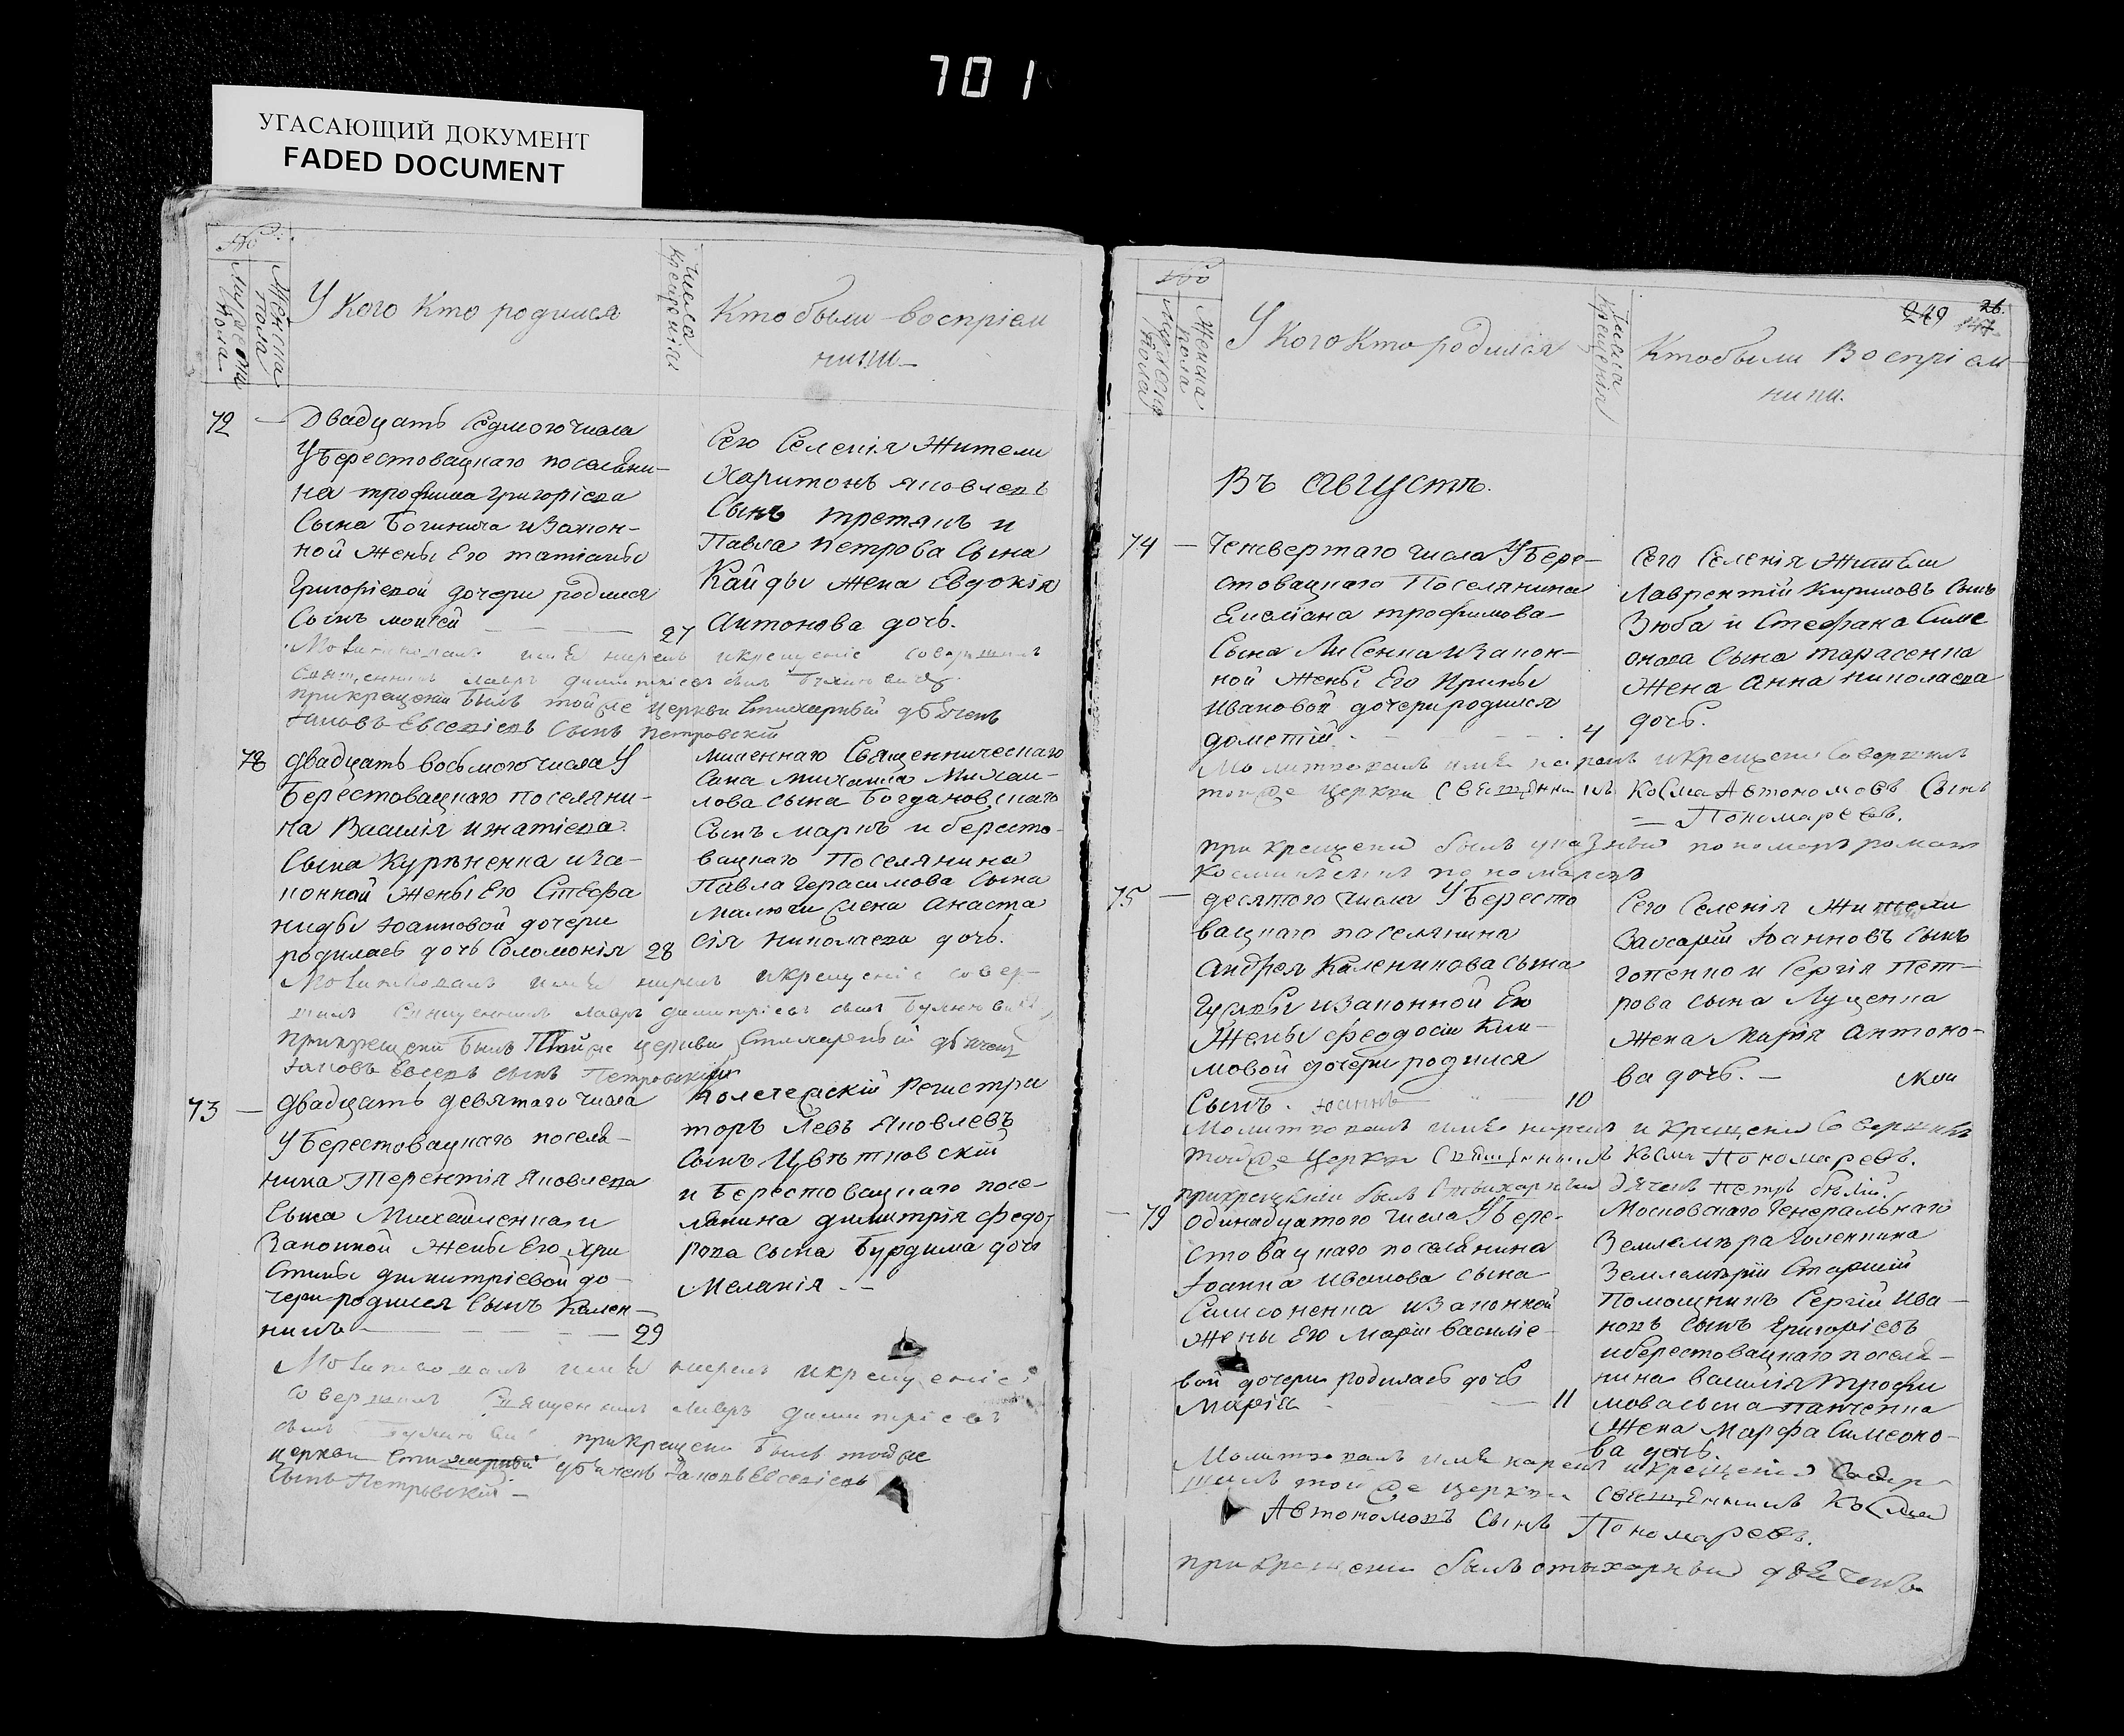 701
УГАСАЮЩИЙ ДОКУМЕНТ
FADED DOCUMENT
№
Мужеска пола
Женска пола
У кого кто родился
Числа крещенія
Кто были воспріем
ники
72 —
Двадцать седмого числа
У Берестовацкаго поселяни-
на трофима григоріева
Сына и закон-
ной жены Его татіаны
Григоріевой дочери родился
Сынъ моисей 27
Сего Селенія Жители
Харитонъ яковлевъ
Сынъ третякъ и
Павла петрова Сына
Кайды жена Евдокія
Антонова дочь.
Молитвовалъ имя нареклъ и крещеніе совершилъ
Священникъ лавръ димитріевъ сынъ
при крещеніи былъ тойже церкви Стихарный дьячекъ
Іаковъ Евсевіевъ Сынъ петровскій
78
двадцать восьмого числа У
Берестовацкаго поселяни-
на Василія игнатіева
Сына Куряченка и за-
конной жены Его Стефа
ниды Іоанновой дочери
родилась дочь Соломонія 28
лишеннаго Священническаго
Сана михаила Михаи-
лова сына Богдановскаго
Сынъ марко и бересто-
вацкаго Поселянина
Павла Герасимова Сына
Малюги жена Анаста
сія николаева дочь.
Молитвовалъ имя нареклъ и крещеніе совер-
шилъ Священникъ лавръ димитріевъ сынъ
при крещеніи былъ Тойже церкви Стихарный дьячекъ
Іаковъ Евсевъ сынъ Петровскій
73 —
двадцать девятаго числа
У Берестовацкаго поселя-
нина Терентія Яковлева
Сына Михайленка и
Законной жены Его Хри
стины димитріевой до-
чери родился Сынъ Кален-
никъ — 29
Колежскій Регистра
торъ Левъ Яковлевъ
Сынъ Цвѣтковскій
и Берестовацкаго посе-
лянина димитрія федо-
рова сына Бурдима дочь
Меланія. —
Молитвовалъ имя нареклъ и крещеніе
совершилъ Священникъ лавръ димитріевъ
сынъ при крещеніи былъ тойже
церкви Стихарный дьячекъ Іаковъ Евсевіевъ
Сынъ Петровскій —
№
Мужеска пола
Женска пола
У кого кто родился
Числа крещенія
Кто были Воспріем-
ники.
249
26.
Въ августѣ.
74 —
Четвертаго числа У Бере-
стовацкаго Поселянина
Емеліана трофимова
Сына Лисенка и закон-
ной жены Его Ирины
Ивановой дочери родился
дометій 4
Сего Селенія Жители
Лаврентій Кириловъ Сынъ
Зюба и Стефана Симе
онова Сына тарасенка
жена Анна николаева
дочь.
Молитвовалъ имя нареклъ и крещеніе Совершилъ
тойже Церкви Священникъ Косма Автономовъ Сынъ
— Пономаревъ.
при крещеніи былъ указный пономарь романъ
75 —
десятого числа У Бересто
вацкаго поселянина
Андрея Каленикова сына
и законной Его
Жены феодосіи Кли-
мовой дочери родился
Сынъ. Іоаннъ 10
Сего Селенія Жители
Захарій Іоанновъ Сынъ
гопенко и Сергія Пет-
рова сына Луценка
Жена Марія Антоно-
ва дочь. —
Молитвовалъ имя нареклъ и крещеніе Совершилъ
тойже Церкви Священникъ Косма Пономаревъ.
при крещеніи былъ Стихарный дьячекъ петръ бѣлій.
— 79
одинадцатого числа У бере-
стовацкаго поселянина
Іоанна иванова сына
Симоненка и законной
жены Его Маріи василіе-
вой дочери родилась дочь
Марія — 11
Московскаго Генеральнаго
Землемѣра Голенкина
Землемѣрій Старшій
Помощникъ Сергій Ива-
новъ сынъ Григоріевъ
и берестовацкаго поселя-
нина василія трофи
мова сына панченка
Жена Марфа Симеоно-
ва дочь.
Молитвовалъ имя нареклъ и крещеніе Совер-
шилъ тойже церкви Священникъ Косма
Автономовъ Сынъ Пономаревъ.
при крещеніи былъ стихарный дьячекъ